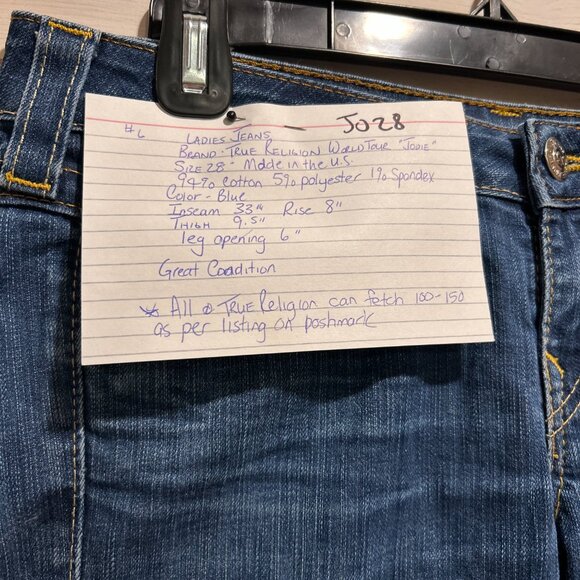 #6
LADIES JEANS — JO28
BRAND - TRUE RELIGION WORLD TOUR "JODIE"
SIZE 28 - Made in the U.S.
94% Cotton 5% polyester 1% Spandex
Color - Blue
Inseam 33" Rise 8"
THIGH 9.5"
leg opening 6"
Great Condition
* All TRUE Religion can fetch 100-150
as per listing on poshmark